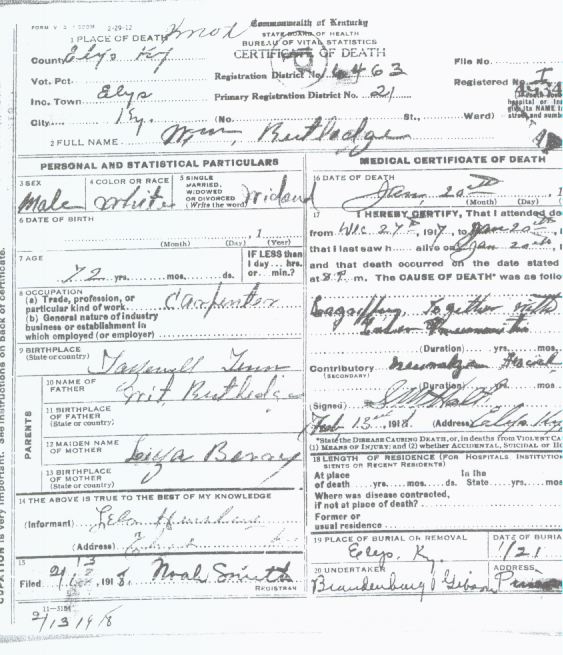 FORM V 2-29-12
Commonwealth of Kentucky
STATE BOARD OF HEALTH
BUREAU OF VITAL STATISTICS
CERTIFICATE OF DEATH
1 PLACE OF DEATH Knox
County Elys Ky
File No.
Vot. Pct.
Registration District No. 6463
Registered No.
Inc. Town Elys
Primary Registration District No. 21
City Ky. (No. St., Ward)
2 FULL NAME Wm, Rutledge
PERSONAL AND STATISTICAL PARTICULARS
3 SEX
Male
4 COLOR OR RACE
White
5 SINGLE
MARRIED,
WIDOWED
OR DIVORCED
(Write the word)
6 DATE OF BIRTH
, 1
(Month) (Day) (Year)
7 AGE
72 yrs. mos. ds.
IF LESS than
1 day... hrs.
or... min.?
8 OCCUPATION
(a) Trade, profession, or
particular kind of work Carpenter
(b) General nature of industry
business or establishment in
which employed (or employer)
9 BIRTHPLACE
(State or country)
Tazewell Tenn
PARENTS
10 NAME OF
FATHER
Rutledge
11 BIRTHPLACE
OF FATHER
(State or country)
12 MAIDEN NAME
OF MOTHER
Berry
13 BIRTHPLACE
OF MOTHER
(State or country)
14 THE ABOVE IS TRUE TO THE BEST OF MY KNOWLEDGE
(Informant)
(Address)
15
Filed , 191 Noah Smith
REGISTRAR
11-3184
2/13 1918
MEDICAL CERTIFICATE OF DEATH
16 DATE OF DEATH
Jan, 20th , 1
(Month) (Day)
17 I HEREBY CERTIFY, That I attended de
from Dec. 27th, 1917, to Jan 20th,
that I last saw h... alive on Jan 20th, 1
and that death occurred on the date stated
at 8 P. m. The CAUSE OF DEATH* was as follo
Together with
(Duration) yrs. mos.
Contributory
(SECONDARY)
(Duration) yrs. mos.
(Signed)
Feb 13, 1918. (Address) Elys Ky
*State the DISEASE CAUSING DEATH, or, in deaths from VIOLENT CA
(1) MEANS OF INJURY; and (2) whether ACCIDENTAL, SUICIDAL or H
18 LENGTH OF RESIDENCE (FOR HOSPITALS INSTITUTION
SIENTS OR RECENT RESIDENTS)
At place In the
of death yrs. mos. ds. State yrs. mos.
Where was disease contracted,
if not at place of death?
Former or
usual residence
19 PLACE OF BURIAL OR REMOVAL
Elys, Ky.
DATE OF BURIA
1/21
20 UNDERTAKER
Brandenburg Gibson
ADDRESS
See instructions on back of certificate.
CUPATION is very important.